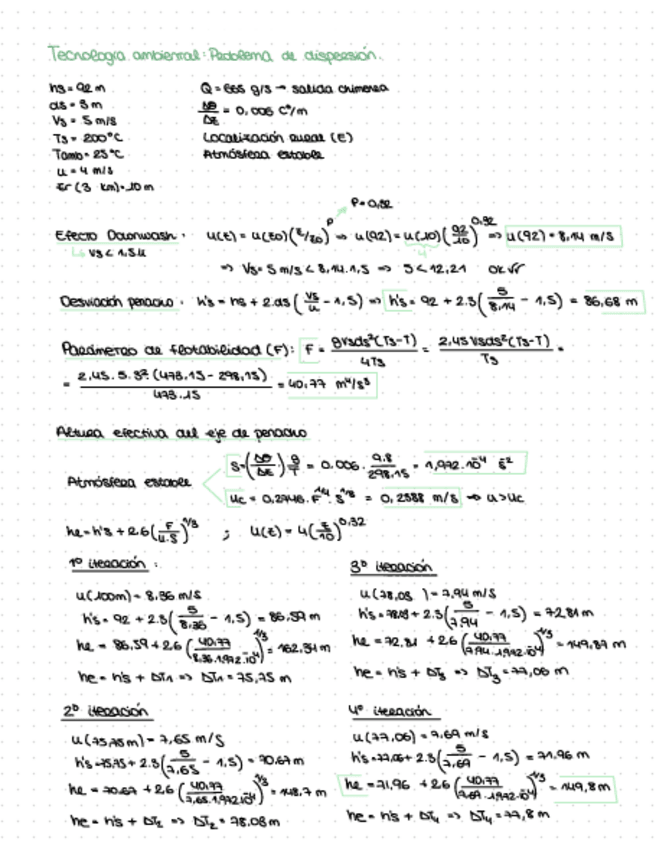 Tecnología ambiental: Problema de dispersión.
hs = 92 m
ds = 3 m
Vs = 5 m/s
Ts = 200°C
Tamb = 25°C
u = 4 m/s
Q = 665 g/s → salida chimenea
Δθ/Δz = 0,006 C°/m
Localización rural (E)
Atmósfera estable
zr (3 km) = 10 m
P = 0,32
Efecto Downwash: u(z) = u(z0)(z/z0)^P ⇒ u(92) = u(10)(92/10)^0,32 ⇒ u(92) = 8,14 m/s
vs < 1,5u
⇒ Vs = 5 m/s < 8,14·1,5 ⇒ 5 < 12,21 OK√
Desviación penacho: h's = hs + 2·ds(vs/u − 1,5) ⇒ h's = 92 + 2·3(5/8,14 − 1,5) = 86,68 m
Parámetro de flotabilidad (F): F = gvsds²(Ts−T)/4Ts = 2,45 Vsds²(Ts−T)/Ts =
= 2,45·5·3²·(473,15 − 298,15)/473,15 = 40,77 m⁴/s³
Altura efectiva del eje de penacho
Atmósfera estable
S = (Δθ/Δz) g/T = 0,006 · 9,8/298,15 = 1,972·10⁻⁴ s⁻²
uc = 0,2746·F^1/4·S^1/8 = 0,2388 m/s ⇒ u > uc
he = h's + 2,6(F/u·S)^1/3 ; u(z) = 4(z/10)^0,32
1º iteración:
u(100m) = 8,36 m/s
h's = 92 + 2·3(5/8,36 − 1,5) = 86,59 m
he = 86,59 + 2,6(40,77/8,36·1,972·10⁻⁴)^1/3 = 162,34 m
he = h's + ΔT1 ⇒ ΔT1 = 75,75 m
2º iteración
u(75,75m) = 7,65 m/s
h's = 75,75 + 2·3(5/7,65 − 1,5) = 70,67 m
he = 70,67 + 2,6(40,77/7,65·1,972·10⁻⁴)^1/3 = 148,7 m
he = h's + ΔT2 ⇒ ΔT2 = 78,03 m
3º iteración
u(78,03 ) = 7,94 m/s
h's = 78,03 + 2·3(5/7,94 − 1,5) = 72,81 m
he = 72,81 + 2,6(40,77/7,94·1,972·10⁻⁴)^1/3 = 149,87 m
he = h's + ΔT3 ⇒ ΔT3 = 77,06 m
4º iteración
u(77,06) = 7,69 m/s
h's = 77,06 + 2·3(5/7,69 − 1,5) = 71,96 m
he = 71,96 + 2,6(40,77/7,69·1,972·10⁻⁴)^1/3 = 149,8 m
he = h's + ΔT4 ⇒ ΔT4 = 77,8 m